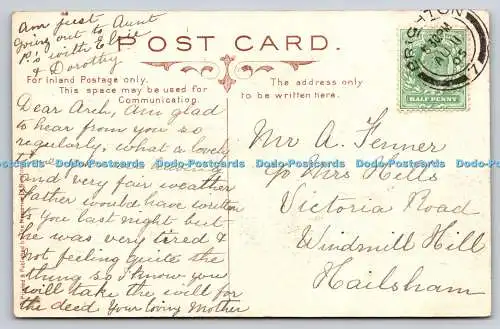 Am just
going out to Aunt
P's with Elsie
& Dorothy
POST CARD.
For Inland Postage only.
This space may be used for
Communication.
The address only
to be written here.
BRIGHTON
HALF PENNY
Dear Arch, Am glad
to hear from you so
regularly, what a lovely
time you are having
and very fair weather
Father would have written
to you last night but
he was very tired &
not feeling quite the
thing so I know you
will take the will for
the deed Your loving Mother
Mr A. Fenner
c/o Mrs Hills
Victoria Road
Windmill Hill
Hailsham
Dodo-Postcards Dodo-Postcards Dodo-Postcards Dodo-Postcards Dodo-Postcards Dodo-Postcards